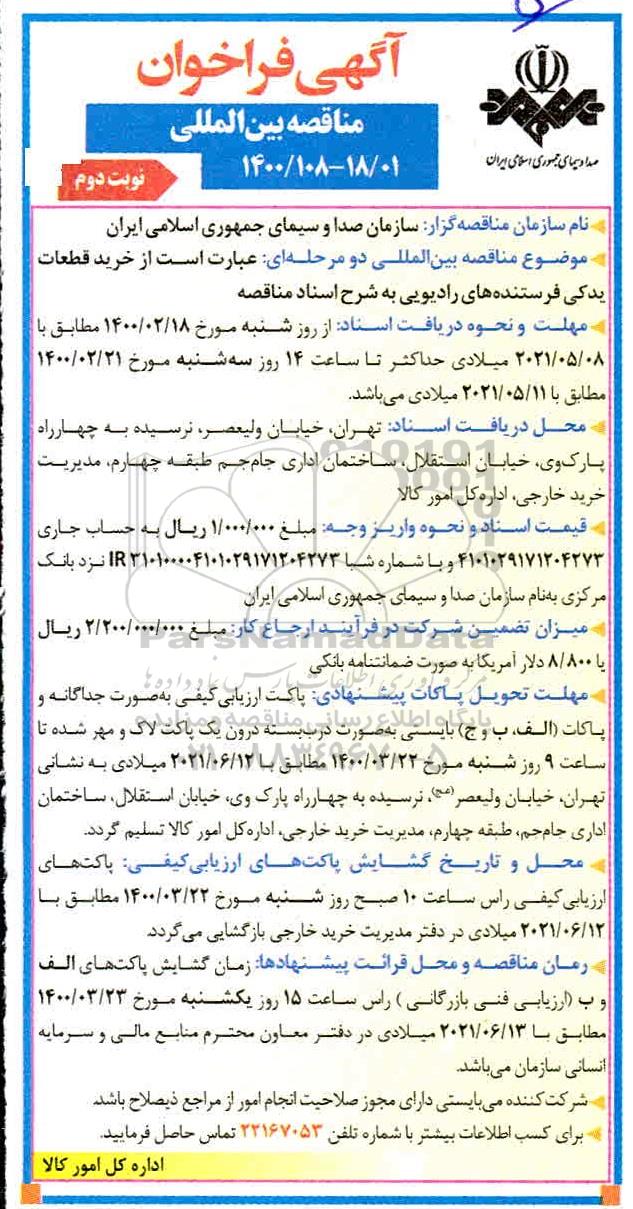 آگهی فراخوان
مناقصه بین‌المللی
۱۴۰۰/۱۰۸-۱۸/۰۱
نوبت دوم
صدا و سیمای جمهوری اسلامی ایران
نام سازمان مناقصه‌گزار: سازمان صدا و سیمای جمهوری اسلامی ایران
موضوع مناقصه بین‌المللی دو مرحله‌ای: عبارت است از خرید قطعات
یدکی فرستنده‌های رادیویی به شرح اسناد مناقصه
مهلت و نحوه دریافت اسناد: از روز شنبه مورخ ۱۴۰۰/۰۲/۱۸ مطابق با
۲۰۲۱/۰۵/۰۸ میلادی حداکثر تا ساعت ۱۴ روز سه‌شنبه مورخ ۱۴۰۰/۰۲/۲۱
مطابق با ۲۰۲۱/۰۵/۱۱ میلادی می‌باشد.
محل دریافت اسناد: تهران، خیابان ولیعصر، نرسیده به چهارراه
پارک‌وی، خیابان استقلال، ساختمان اداری جام‌جم طبقه چهارم، مدیریت
خرید خارجی، اداره‌کل امور کالا
قیمت اسناد و نحوه واریز وجه: مبلغ ۱/۰۰۰/۰۰۰ ریال به حساب جاری
۴۱۰۱۰۲۹۱۷۱۲۰۴۲۷۳ و با شماره شبا IR ۳۱۰۱۰۰۰۰۴۱۰۱۰۲۹۱۷۱۲۰۴۲۷۳ نزد بانک
مرکزی به‌نام سازمان صدا و سیمای جمهوری اسلامی ایران
میزان تضمین شرکت در فرآیند ارجاع کار: مبلغ ۲/۲۰۰/۰۰۰/۰۰۰ ریال
یا ۸/۸۰۰ دلار آمریکا به صورت ضمانتنامه بانکی
مهلت تحویل پاکات پیشنهادی: پاکت ارزیابی کیفی به‌صورت جداگانه و
پاکات (الف، ب و ج) بایستی به‌صورت درب‌بسته درون یک پاکت لاک و مهر شده تا
ساعت ۹ روز شنبه مورخ ۱۴۰۰/۰۳/۲۲ مطابق با ۲۰۲۱/۰۶/۱۲ میلادی به نشانی
تهران، خیابان ولیعصر(عج)، نرسیده به چهارراه پارک وی، خیابان استقلال، ساختمان
اداری جام‌جم، طبقه چهارم، مدیریت خرید خارجی، اداره‌کل امور کالا تسلیم گردد.
محل و تاریخ گشایش پاکت‌های ارزیابی‌کیفی: پاکت‌های
ارزیابی‌کیفی راس ساعت ۱۰ صبح روز شنبه مورخ ۱۴۰۰/۰۳/۲۲ مطابق با
۲۰۲۱/۰۶/۱۲ میلادی در دفتر مدیریت خرید خارجی بازگشایی می‌گردد.
زمان مناقصه و محل قرائت پیشنهادها: زمان گشایش پاکت‌های الف
و ب (ارزیابی فنی بازرگانی) راس ساعت ۱۵ روز یکشنبه مورخ ۱۴۰۰/۰۳/۲۳
مطابق با ۲۰۲۱/۰۶/۱۳ میلادی در دفتر معاون محترم منابع مالی و سرمایه
انسانی سازمان می‌باشد.
شرکت‌کننده می‌بایستی دارای مجوز صلاحیت انجام امور از مراجع ذیصلاح باشد.
برای کسب اطلاعات بیشتر با شماره تلفن ۲۲۱۶۷۰۵۳ تماس حاصل فرمایید.
اداره کل امور کالا
ParsNamadData
پایگاه اطلاع رسانی مناقصه و مزایده